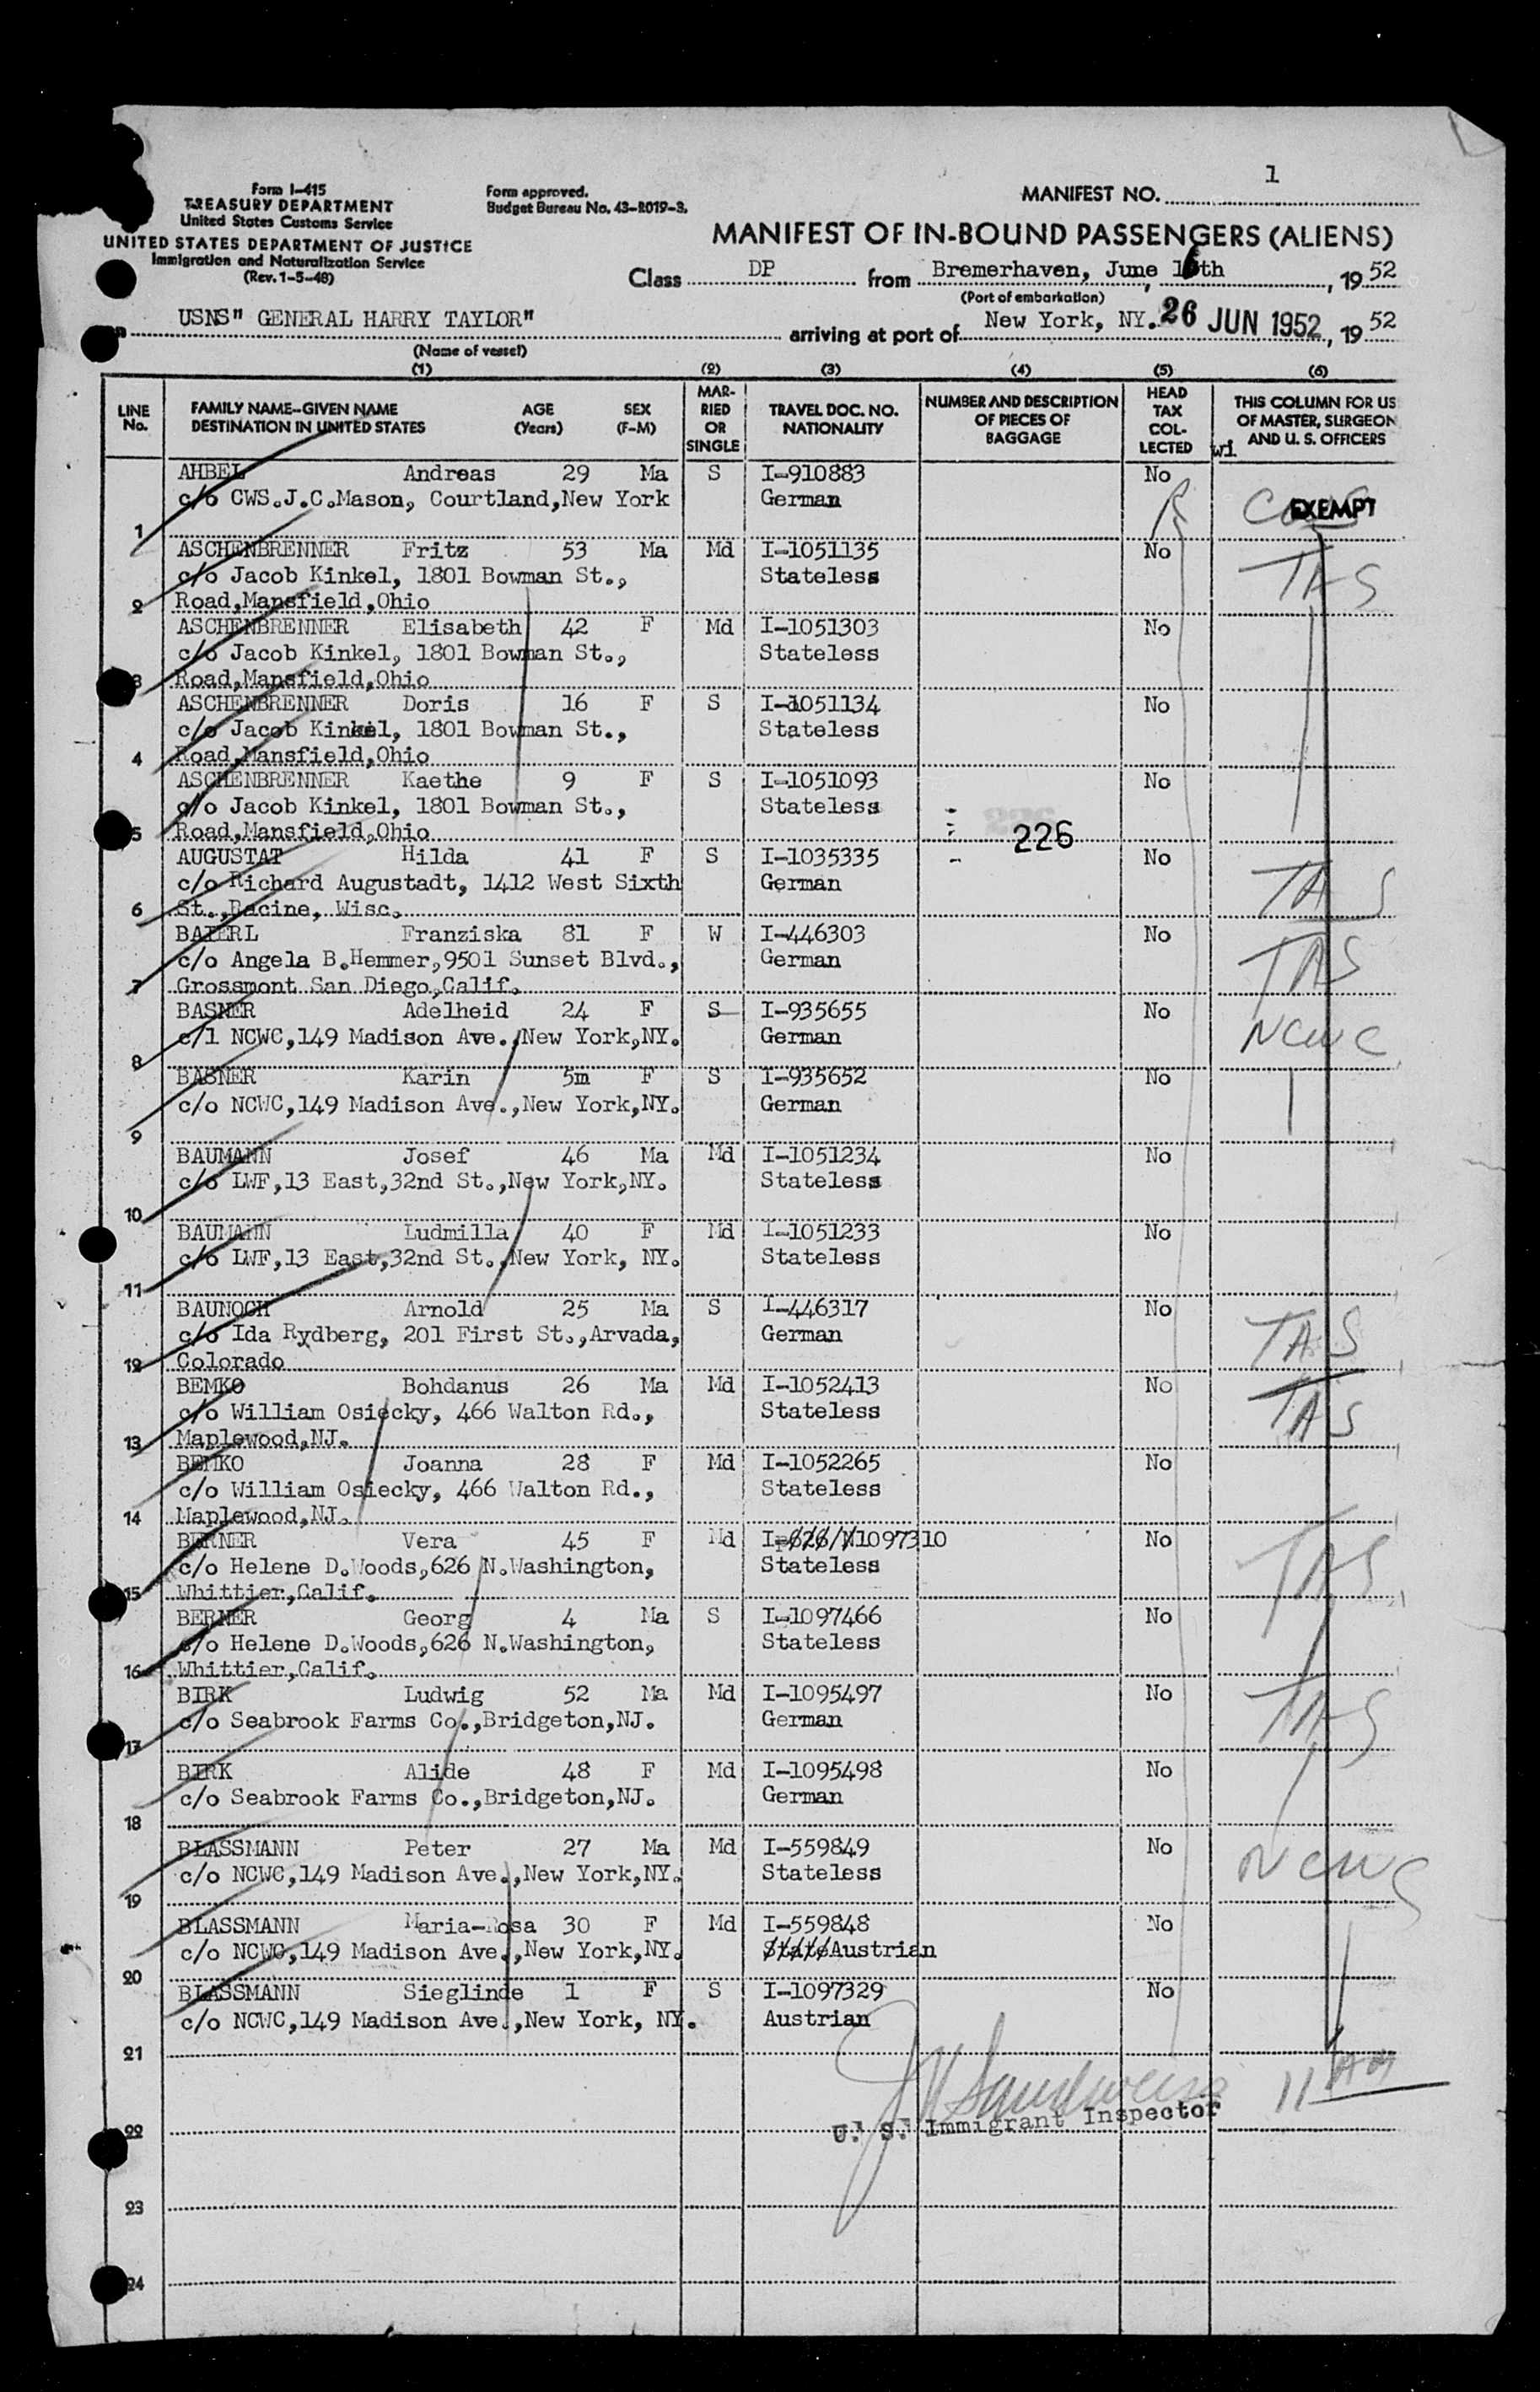 Form I-415
TREASURY DEPARTMENT
United States Customs Service
UNITED STATES DEPARTMENT OF JUSTICE
Immigration and Naturalization Service
(Rev. 1-5-48)
Form approved.
Budget Bureau No. 43-R019-3.
MANIFEST NO. 1
MANIFEST OF IN-BOUND PASSENGERS (ALIENS)
Class DP from Bremerhaven, June 16th, 19 52
(Port of embarkation)
USNS" GENERAL HARRY TAYLOR" arriving at port of New York, NY. 26 JUN 1952, 19 52
(Name of vessel)
(1) (2) (3) (4) (5) (6)
LINE No.
FAMILY NAME—GIVEN NAME DESTINATION IN UNITED STATES
AGE (Years)
SEX (F-M)
MARRIED OR SINGLE
TRAVEL DOC. NO. NATIONALITY
NUMBER AND DESCRIPTION OF PIECES OF BAGGAGE
HEAD TAX COLLECTED
THIS COLUMN FOR US OF MASTER, SURGEON AND U. S. OFFICERS
wi
AHBEL Andreas 29 Ma S I-910883 No
c/o CWS.J.C.Mason, Courtland,New York German EXEMPT
1
ASCHENBRENNER Fritz 53 Ma Md I-1051135 No
c/o Jacob Kinkel, 1801 Bowman St., Stateless TAS
2 Road,Mansfield,Ohio
ASCHENBRENNER Elisabeth 42 F Md I-1051303 No
c/o Jacob Kinkel, 1801 Bowman St., Stateless
3 Road,Mansfield,Ohio
ASCHENBRENNER Doris 16 F S I-1051134 No
c/o Jacob Kinkel, 1801 Bowman St., Stateless
4 Road,Mansfield,Ohio
ASCHENBRENNER Kaethe 9 F S I-1051093 No
c/o Jacob Kinkel, 1801 Bowman St., Stateless
5 Road,Mansfield,Ohio 226
AUGUSTAT Hilda 41 F S I-1035335 No
c/o Richard Augustadt, 1412 West Sixth German TAS
6 St.,Racine, Wisc.
BAIERL Franziska 81 F W I-446303 No
c/o Angela B.Hemmer,9501 Sunset Blvd., German TAS
7 Grossmont San Diego,Calif.
BASNER Adelheid 24 F S I-935655 No
c/l NCWC,149 Madison Ave.,New York,NY. German NCWC
8
BASNER Karin 5m F S I-935652 No
c/o NCWC,149 Madison Ave.,New York,NY. German
9
BAUMANN Josef 46 Ma Md I-1051234 No
c/o LWF,13 East,32nd St.,New York,NY. Stateless
10
BAUMANN Ludmilla 40 F Md I-1051233 No
c/o LWF,13 East,32nd St.,New York, NY. Stateless
11
BAUNOCH Arnold 25 Ma S I-446317 No
c/o Ida Rydberg, 201 First St.,Arvada, German TAS
12 Colorado
BEMKO Bohdanus 26 Ma Md I-1052413 No
c/o William Osiecky, 466 Walton Rd., Stateless TAS
13 Maplewood,NJ.
BEMKO Joanna 28 F Md I-1052265 No
c/o William Osiecky, 466 Walton Rd., Stateless
14 Maplewood,NJ.
BERNER Vera 45 F Md I-1097310 No
c/o Helene D.Woods,626 N.Washington, Stateless TAS
15 Whittier,Calif.
BERNER Georg 4 Ma S I-1097466 No
c/o Helene D.Woods,626 N.Washington, Stateless
16 Whittier,Calif.
BIRK Ludwig 52 Ma Md I-1095497 No
c/o Seabrook Farms Co.,Bridgeton,NJ. German TAS
17
BIRK Alide 48 F Md I-1095498 No
c/o Seabrook Farms Co.,Bridgeton,NJ. German
18
BLASSMANN Peter 27 Ma Md I-559849 No
c/o NCWC,149 Madison Ave.,New York,NY. Stateless NCWC
19
BLASSMANN Maria-Rosa 30 F Md I-559848 No
c/o NCWC,149 Madison Ave.,New York,NY. State Austrian
20
BLASSMANN Sieglinde 1 F S I-1097329 No
c/o NCWC,149 Madison Ave.,New York, NY. Austrian
21
11 AM
U. S. Immigrant Inspector
22
23
24